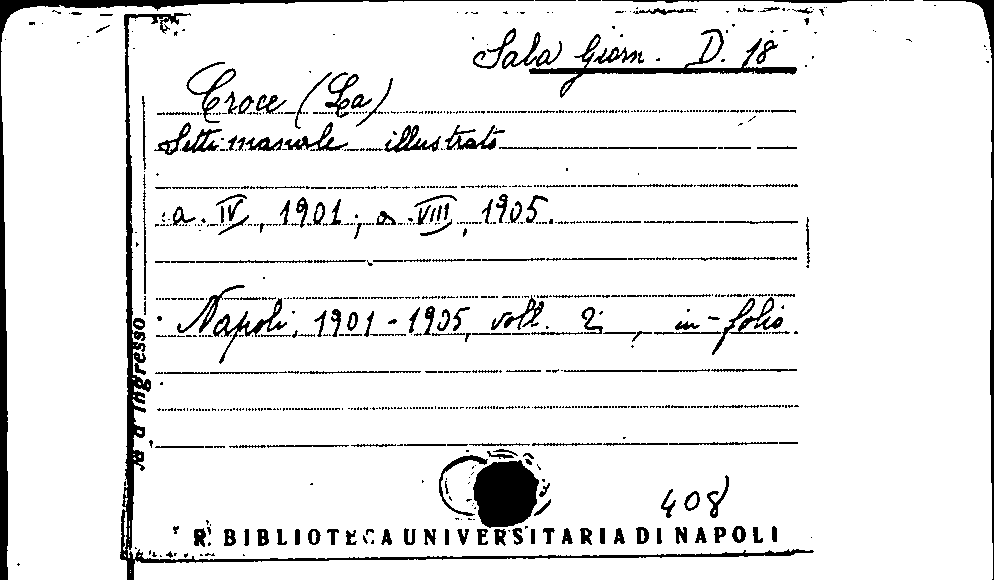 Sala Giorn. D. 18
Croce (La)
Settimanale illustrato
a. IV, 1901; a. VIII, 1905.
Napoli, 1901-1905, voll. 2, in-folio.
d'ingresso
408
R. BIBLIOTECA UNIVERSITARIA DI NAPOLI